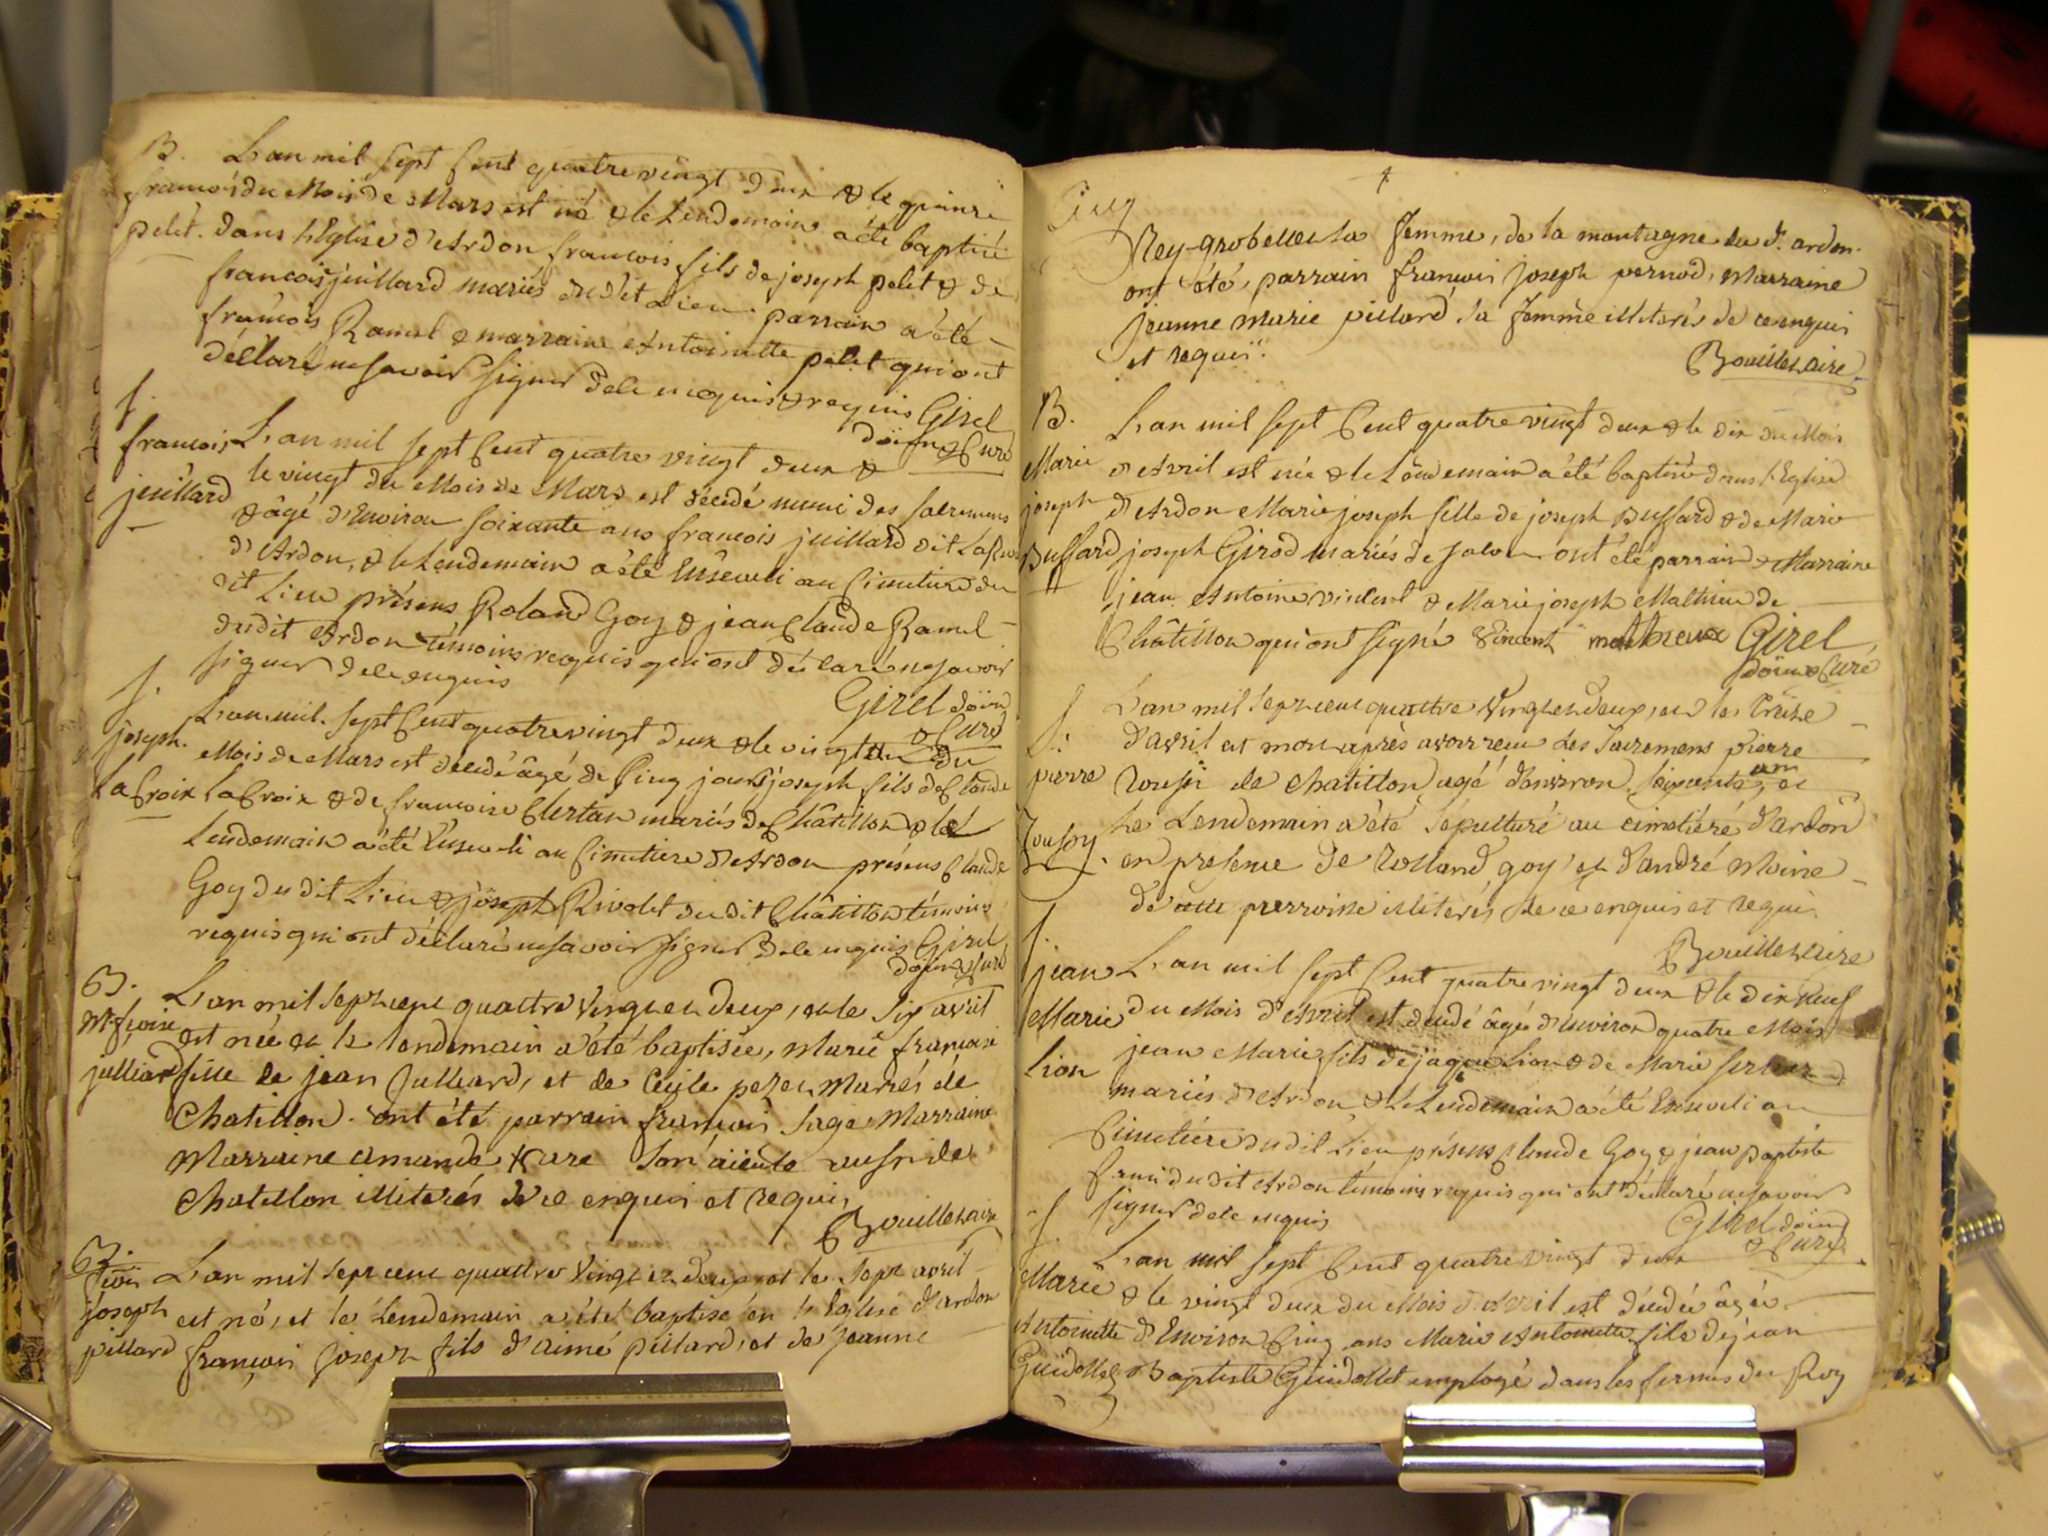 B. L'an mil sept Cent quatre vingt deux & le quinze
francois du Mois de Mars est né & le Lendemain a été baptisé
pelét. dans l'Eglise d'Ardon francois fils de joseph pelét & de
francoise juillard mariés du dit Lieu. parrain a été
francois Ramel & marraine Antoinette pelét qui ont
déclaré ne savoir signer de ce enquis & requis Girel
doïen & Curé
f.
francois L'an mil sept Cent quatre vingt deux &
juillard le vingt du Mois de Mars est décédé muni des sacremens
& âgé d'Environ soixante ans francois juillard dit
d'Ardon, & le Lendemain a été Enseveli au Cimetiere du
dit Lieu présens Roland Goy & jean Claude Ramel
dudit Ardon témoins requis qui ont déclaré ne savoir
signer de ce enquis Girel doïen
& Curé
f. L'an mil sept Cent quatre vingt deux & le vingt du
joseph. Mois de Mars est décédé âgé de Cinq jours joseph fils de Claude
LaCroix LaCroix & de francoise Clertan mariés de Châtillon & le
Lendemain a été Enseveli au Cimetiere d'Ardon présens Claude
Goy du dit Lieu & joseph Rivolet du dit Châtillon témoins
requis qui ont déclaré ne savoir signer de ce enquis Girel
doïen & Curé
B. L'an mil sept cent quattre vingt et deux, et le six avril
M. fçoise est née et le lendemain a été baptisée, marie françoise
julliard fille de jean Julliard, et de Cecile pezet mariés de
Chatillon. ont été parrain françois sage Marraine
Marraine amande son aieule aussi de
Chatillon illiterés de ce enquis et requis
Bouillet vicaire
B.
fçois L'an mil sept cent quattre vingt et deux, et le sept avril
joseph est né, et le Lendemain a été baptisé en l'Eglise d'ardon
pillard françois joseph fils d'aimé pillard, et de jeanne
Rey-grobellet sa femme, de la montagne du dt. ardon.
ont été, parrain françois joseph pernod, marraine
jeanne marie pillard sa femme illiterés de ce enquis
et requis.
Bouillet vicaire
B. L'an mil sept Cent quatre vingt deux & le dix du Mois
Marie d'Avril est née & le Lendemain a été baptisée dans l'Eglise
joseph d'Ardon Marie joseph fille de joseph Buffard & de Marie
Buffard joseph Girod mariés de ont été parrain & Marraine
jean Antoine vincent & Marie joseph Mathieu de
Châtillon qui ont signé vincent mathieux Girel
doïen & Curé
f. L'an mil sept cent quattre vingt et deux, et le treize
d'avril est mort après avoir reçu les sacremens pierre
pierre de Chatillon agé d'environ soixante ans, et
le Lendemain a été sépulturé au cimetiére d'ardon
en presence de rolland goy et d'andré moine
de cette parroisse illiterés, de ce enquis et requis.
Bouillet vicaire
f.
jean L'an mil sept Cent quatre vingt deux & le dix neuf
Marie du Mois d'Avril est décédé âgé d'Environ quatre Mois
Lion jean Marie fils de jaque Lion & de Marie
mariés d'Ardon, & le Lendemain a été Enseveli au
Cimetiére du dit Lieu présens Claude Goy & jean Baptiste
du dit Ardon témoins requis qui ont déclaré ne savoir
signer de ce enquis Girel doïen
& Curé
f. L'an mil sept Cent quatre vingt deux
Marie & le vingt deux du Mois d'Avril est décédée âgée
Antoinette d'Environ Cinq ans Marie Antoinette fille de jean
Guidollet Baptiste Guidollet employé dans les fermes du Roy